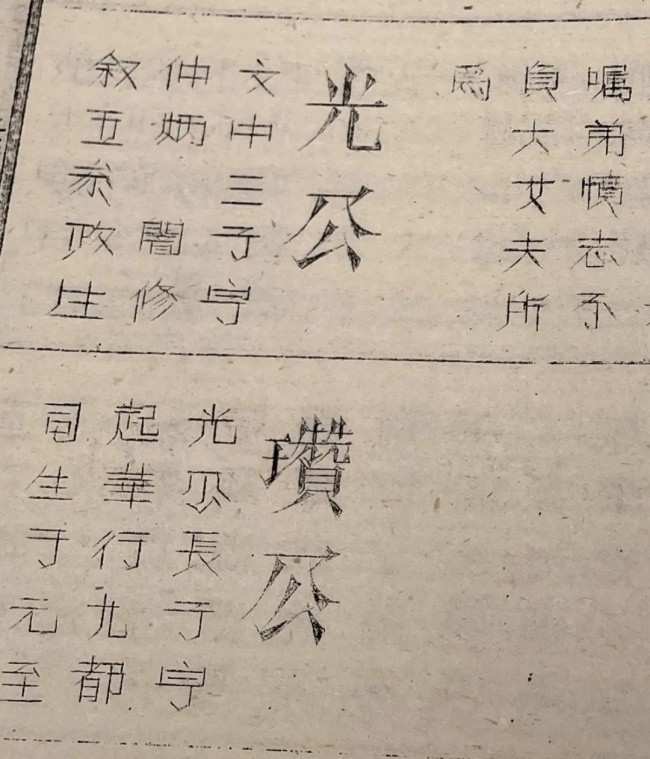 嘱弟憤志不
負大丈夫所
爲
光公
文中三子字
仲炳闇修
叙五叅政生
瓚公
光公長子字
起華行九都
司生于元至